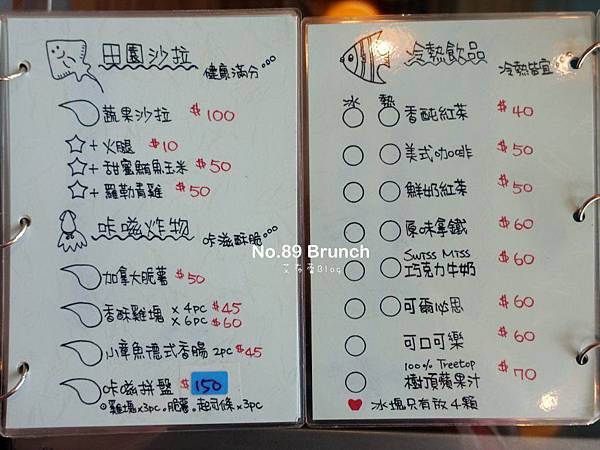 田園沙拉 健康滿分...
蔬果沙拉 $100
☆+火腿 $10
☆+甜蜜鮪魚玉米 $50
☆+羅勒青雞 $50
咔滋炸物 咔滋酥脆...
加拿大脆薯 $50
香酥雞塊 x4pc $45
x6pc $60
小章魚德式香腸 2pc $45
咔滋拼盤 $150
◎雞塊x3pc.脆薯.起司條x3pc
冷熱飲品 冷熱皆宜...
冰 熱
香醇紅茶 $40
美式咖啡 $50
鮮奶紅茶 $50
原味拿鐵 $60
Swiss Miss
巧克力牛奶 $60
可爾必思 $60
可口可樂 $60
100% Treetop
樹頂蘋果汁 $70
♥ 冰塊只有放4顆
No.89 Brunch